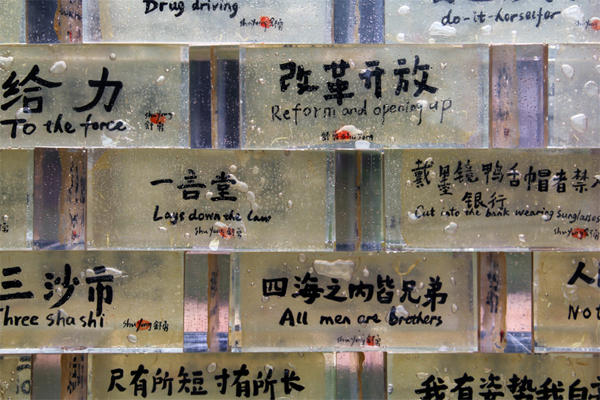 Drug driving
do-it-horselfer
给力
To the force
改革开放
Reform and opening up
舒勇 Shu Yong
一言堂
Lays down the law
Shu Yong 舒勇
戴墨镜鸭舌帽者禁入
银行
Cut into the bank wearing sunglasses
三沙市
Three sha shi
Shu Yong 舒勇
四海之内皆兄弟
All men are brothers
Shu Yong 舒勇
人
Not
尺有所短寸有所长
我有姿势我自